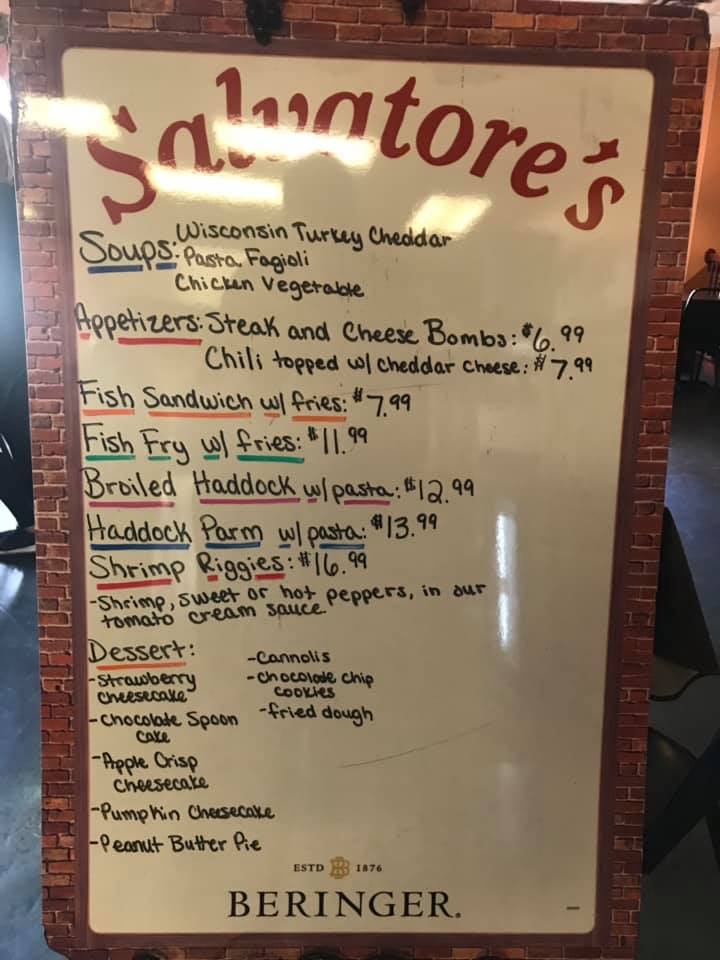 Salvatore's
Soups: Wisconsin Turkey Cheddar
Pasta Fagioli
Chicken Vegetable
Appetizers: Steak and Cheese Bombs: $6.99
Chili topped w/ cheddar cheese: $7.99
Fish Sandwich w/ fries: $7.99
Fish Fry w/ fries: $11.99
Broiled Haddock w/ pasta: $12.99
Haddock Parm w/ pasta: $13.99
Shrimp Riggies: $16.99
-Shrimp, sweet or hot peppers, in our
tomato cream sauce.
Dessert:
-Strawberry
cheesecake
-Chocolate Spoon
Cake
-Apple Crisp
Cheesecake
-Pumpkin Cheesecake
-Peanut Butter Pie
-Cannolis
-Chocolate chip
cookies
-fried dough
ESTD B 1876
BERINGER.